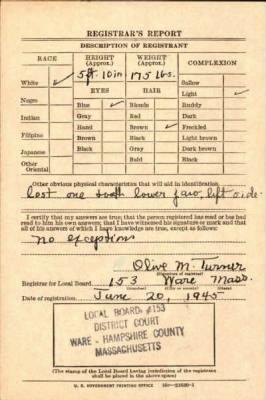 REGISTRAR'S REPORT
DESCRIPTION OF REGISTRANT
RACE
HEIGHT (Approx.)
WEIGHT (Approx.)
COMPLEXION
White ✓
5 ft. 10 in.
175 lbs.
Sallow
Light ✓
Negro
EYES
HAIR
Ruddy
Blue ✓
Blonde
Dark
Indian
Gray
Red
Freckled
Filipino
Hazel
Brown ✓
Light brown
Japanese
Brown
Black
Dark brown
Other Oriental
Black
Gray
Black
Bald
Other obvious physical characteristics that will aid in identification
lost one tooth lower jaw, left side.
I certify that my answers are true; that the person registered has read or has had
read to him his own answers; that I have witnessed his signature or mark and that
all of his answers of which I have knowledge are true, except as follows:
no exceptions
Olive M. Turner
(Signature of registrar)
Registrar for Local Board 153 Ware Mass.
(Number) (City or county) (State)
Date of registration June 20, 1945
LOCAL BOARD #153
DISTRICT COURT
WARE - HAMPSHIRE COUNTY
MASSACHUSETTS
(The stamp of the Local Board having jurisdiction of the registrant
shall be placed in the above space)
U. S. GOVERNMENT PRINTING OFFICE